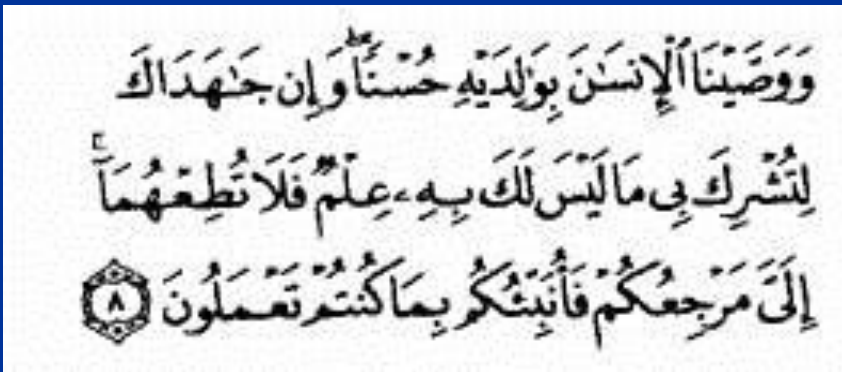 وَوَصَّيْنَا ٱلْإِنسَٰنَ بِوَٰلِدَيْهِ حُسْنًا ۖ وَإِن جَٰهَدَاكَ
لِتُشْرِكَ بِى مَا لَيْسَ لَكَ بِهِۦ عِلْمٌ فَلَا تُطِعْهُمَآ ۚ
إِلَىَّ مَرْجِعُكُمْ فَأُنَبِّئُكُم بِمَا كُنتُمْ تَعْمَلُونَ ٨